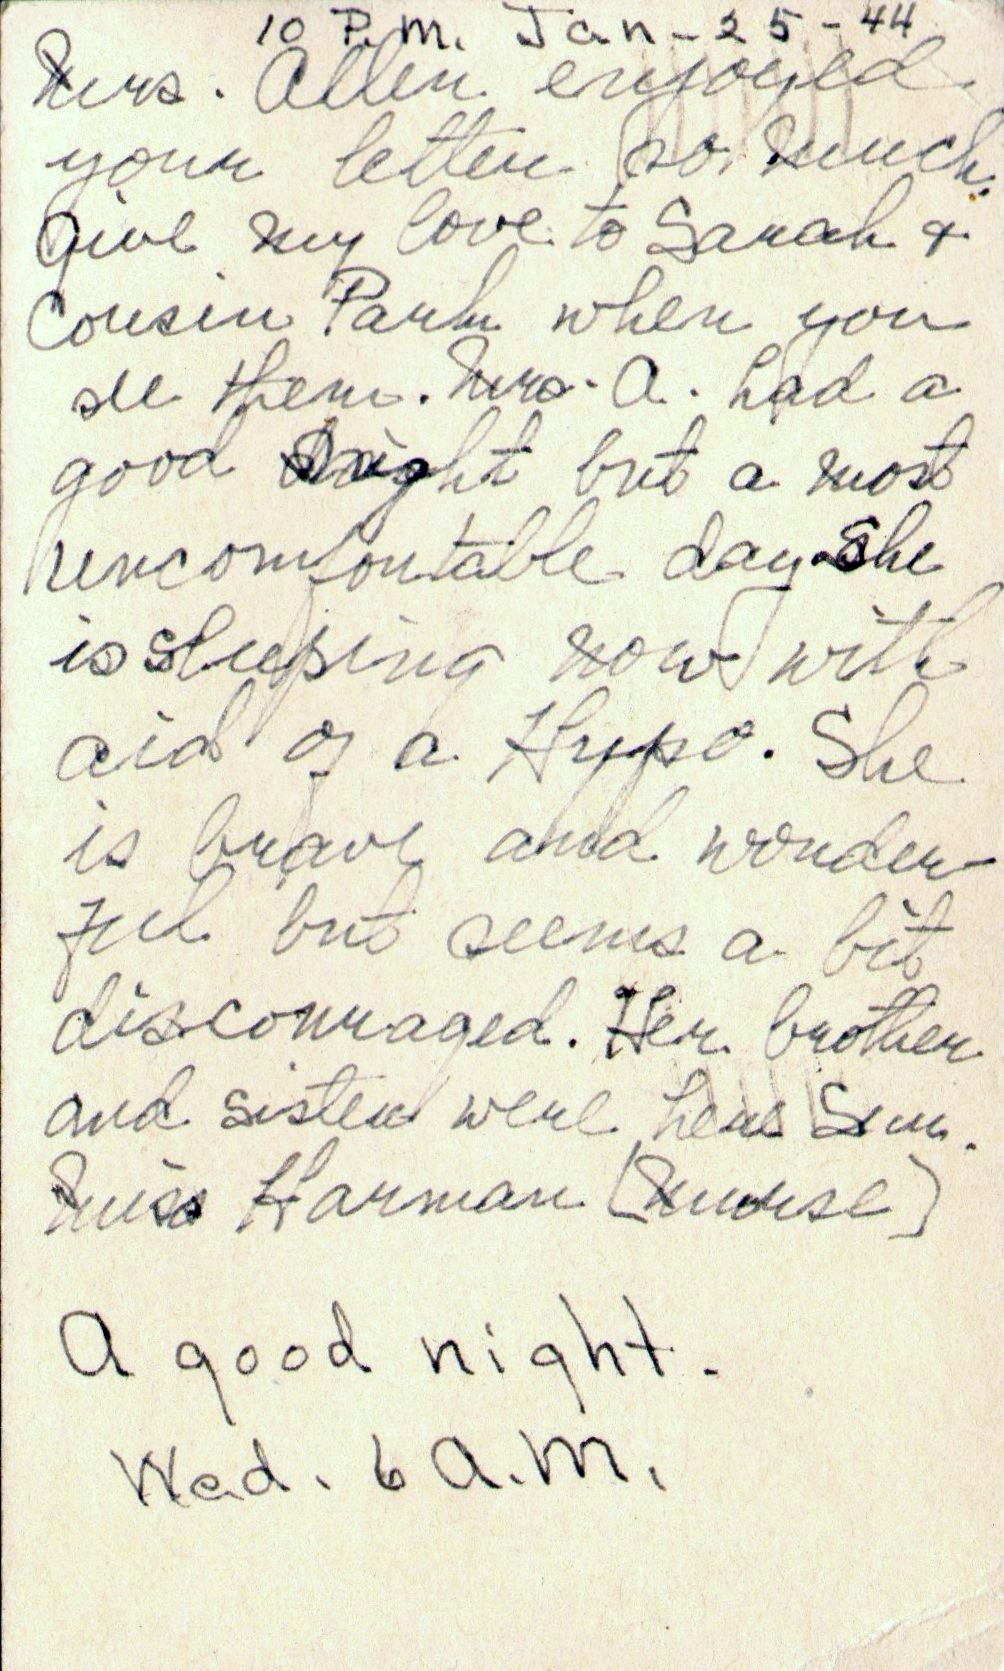 10 P.M. Jan-25-44
Mrs. Allen enjoyed
your letter so much.
Give my love to Sarah &
Cousin Park when you
see them. Mrs. A. had a
good night but a most
uncomfortable day. She
is sleeping now with
aid of a Hypo. She
is brave and wonder-
ful but seems a bit
discouraged. Her brother
and sister were here Sun.
Miss Harman (Nurse)
A good night.
Wed. 6 A.M.